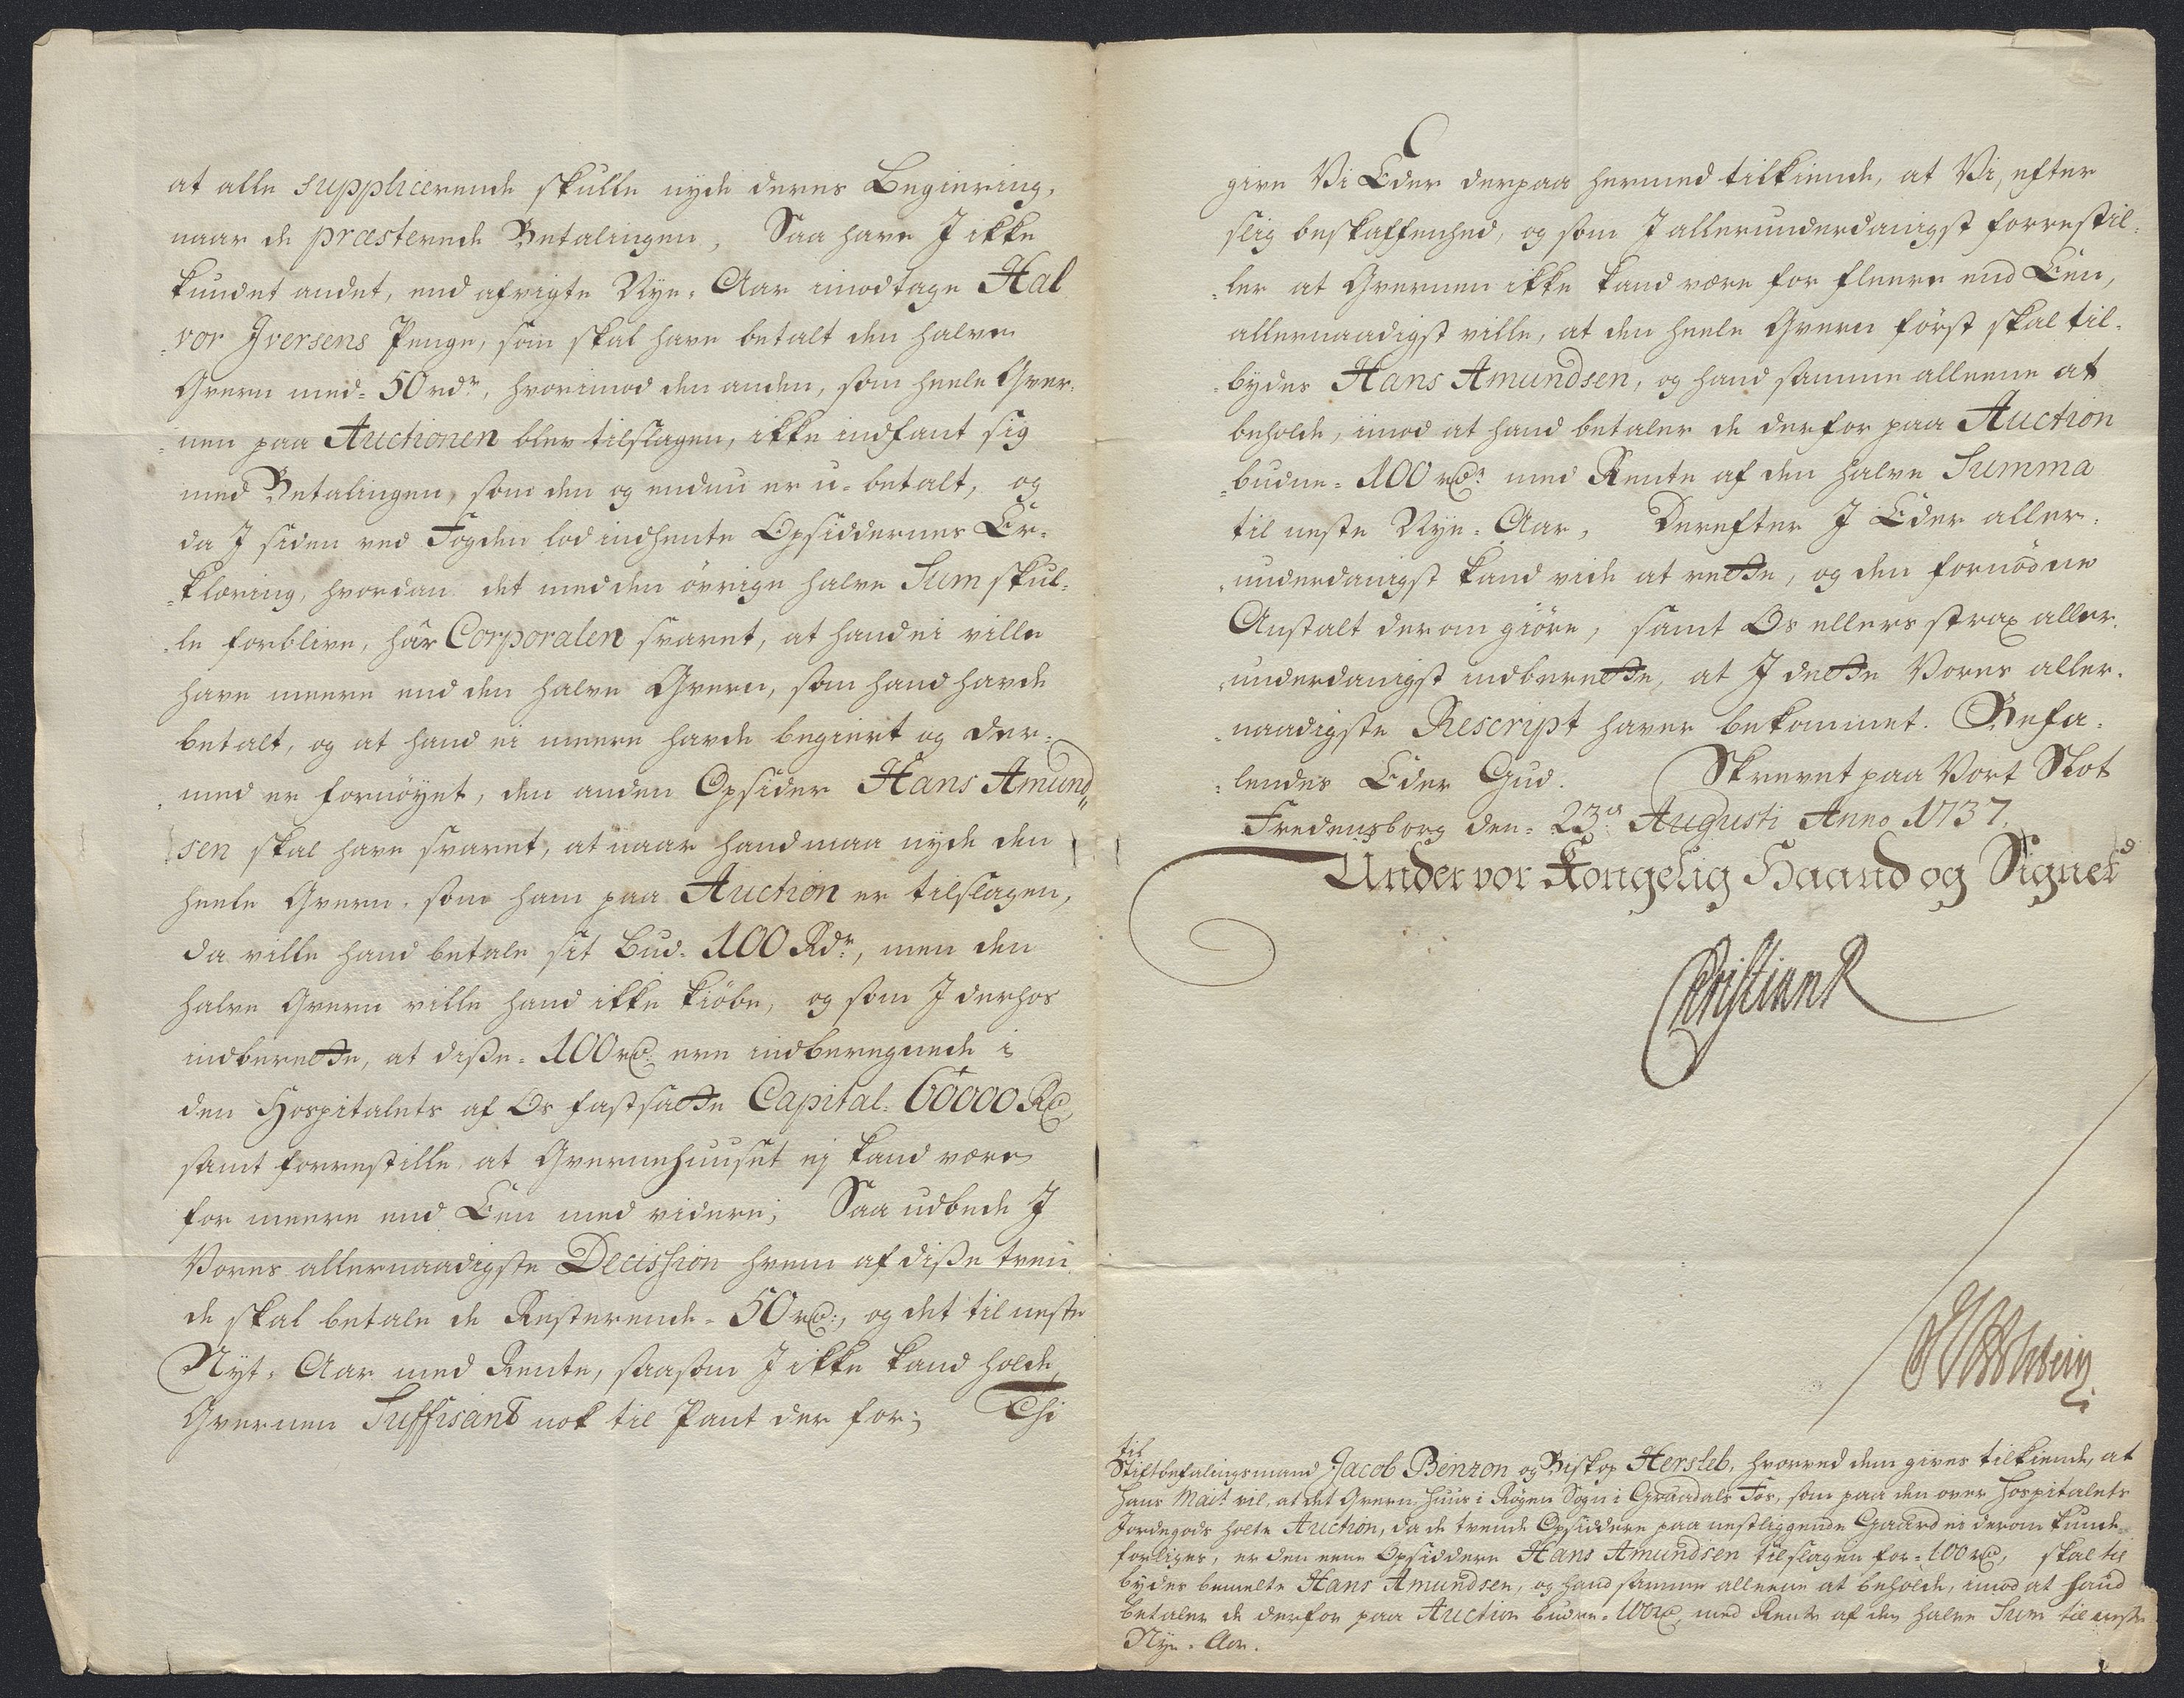 at alle supplicerende skulle nyde deres Begiering,
naar de præsterede Betalingen, Saa have J ikke
kundet andet, end afvigte Nye-Aar imodtage Hal
-vor Jversens Penge, som skal have betalt den halve
Qvern med 50 rdr, hvorimod den anden, som heele Qver-
-nen paa Auctionen blev tilslagen, ikke indfant sig
med Betalingen, som den og endnu er u-betalt, og
da J siden ved Fogden lod indhente Opsiddernes Er-
-klæring, hvordan det med den övrige halve Sum skul-
-le forblive, har Corporalen svaret, at hand ei ville
have meere end den halve Qvern, som hand havde
betalt, og at hand ei meere havde begiert og der-
-med er fornöyet, den anden Opsider Hans Amund-
sen skal have svaret, at naar hand maa nyde den
heele Qvern, som ham paa Auction er tilslagen,
da ville hand betale sit Bud 100 Rdr, men den
halve Qvern ville hand ikke kiöbe, og som J derhos
indberette, at disse 100 rd. ere indberegnede i
den Hospitalets af Os fastsatte Capital 60000 Rd,
samt forrestille at Qvernehuuset ej kand være
for meere end Een med videre; Saa udbede J
Vores allernaadigste Decission hvem af disse tven
de skal betale de Resterende 50 rd:, og det til neste
Nyt-Aar med Rente, saasom J ikke kand holde
Qvernen Suffisant nok til Pant der for; Thi
give Vi Eder derpaa hermed tilkiende, at Vi, efter
slig beskaffenhed, og som J allerunderdanigst forrestil-
-ler at Qvernen ikke kand være for fleere end Een,
allernaadigst ville, at den heele Qvern först skal til-
-bydes Hans Amundsen, og hand samme alleene at
beholde, imod at hand betaler de derfor paa Auction
-budne 100 rd: med Rente af den halve Summa
til neste Nye-Aar, Derefter J Eder aller-
-underdanigst kand vide at rette, og den fornödne
Anstalt derom giöre, samt Os ellers strax aller-
-underdanigst indberette, at J dette Vores aller-
-naadigste Rescript haver bekommet. Befa-
-lendes Eder Gud. Skrevet paa Vort Slot
Fredensborg den 23de Augusti Anno 1737.
Under vor Kongelig Haand og Signet
Christian R
til
Stiftbefalingsmand Jacob Benzon og Biskop Hersleb, hvorved dem gives tilkiende, at
Hans Mait vil, at det Qvern-Huus i Rögen Sogn i Gruudals Foг, som paa den over Hospitalets
Jordegods holte Auction, da de tvende Opsiddere paa nestliggende Gaard ei derom kunde
forliges, er den eene Opsiddere Hans Amundsen tilslagen for 100 rd, skal til
bydes bemelte Hans Amundsen, og hand samme alleene at beholde, imod at hand
betaler de derfor paa Auction budne 100 rd, med Rente af den halve Sum til neste
Nye-Aar.